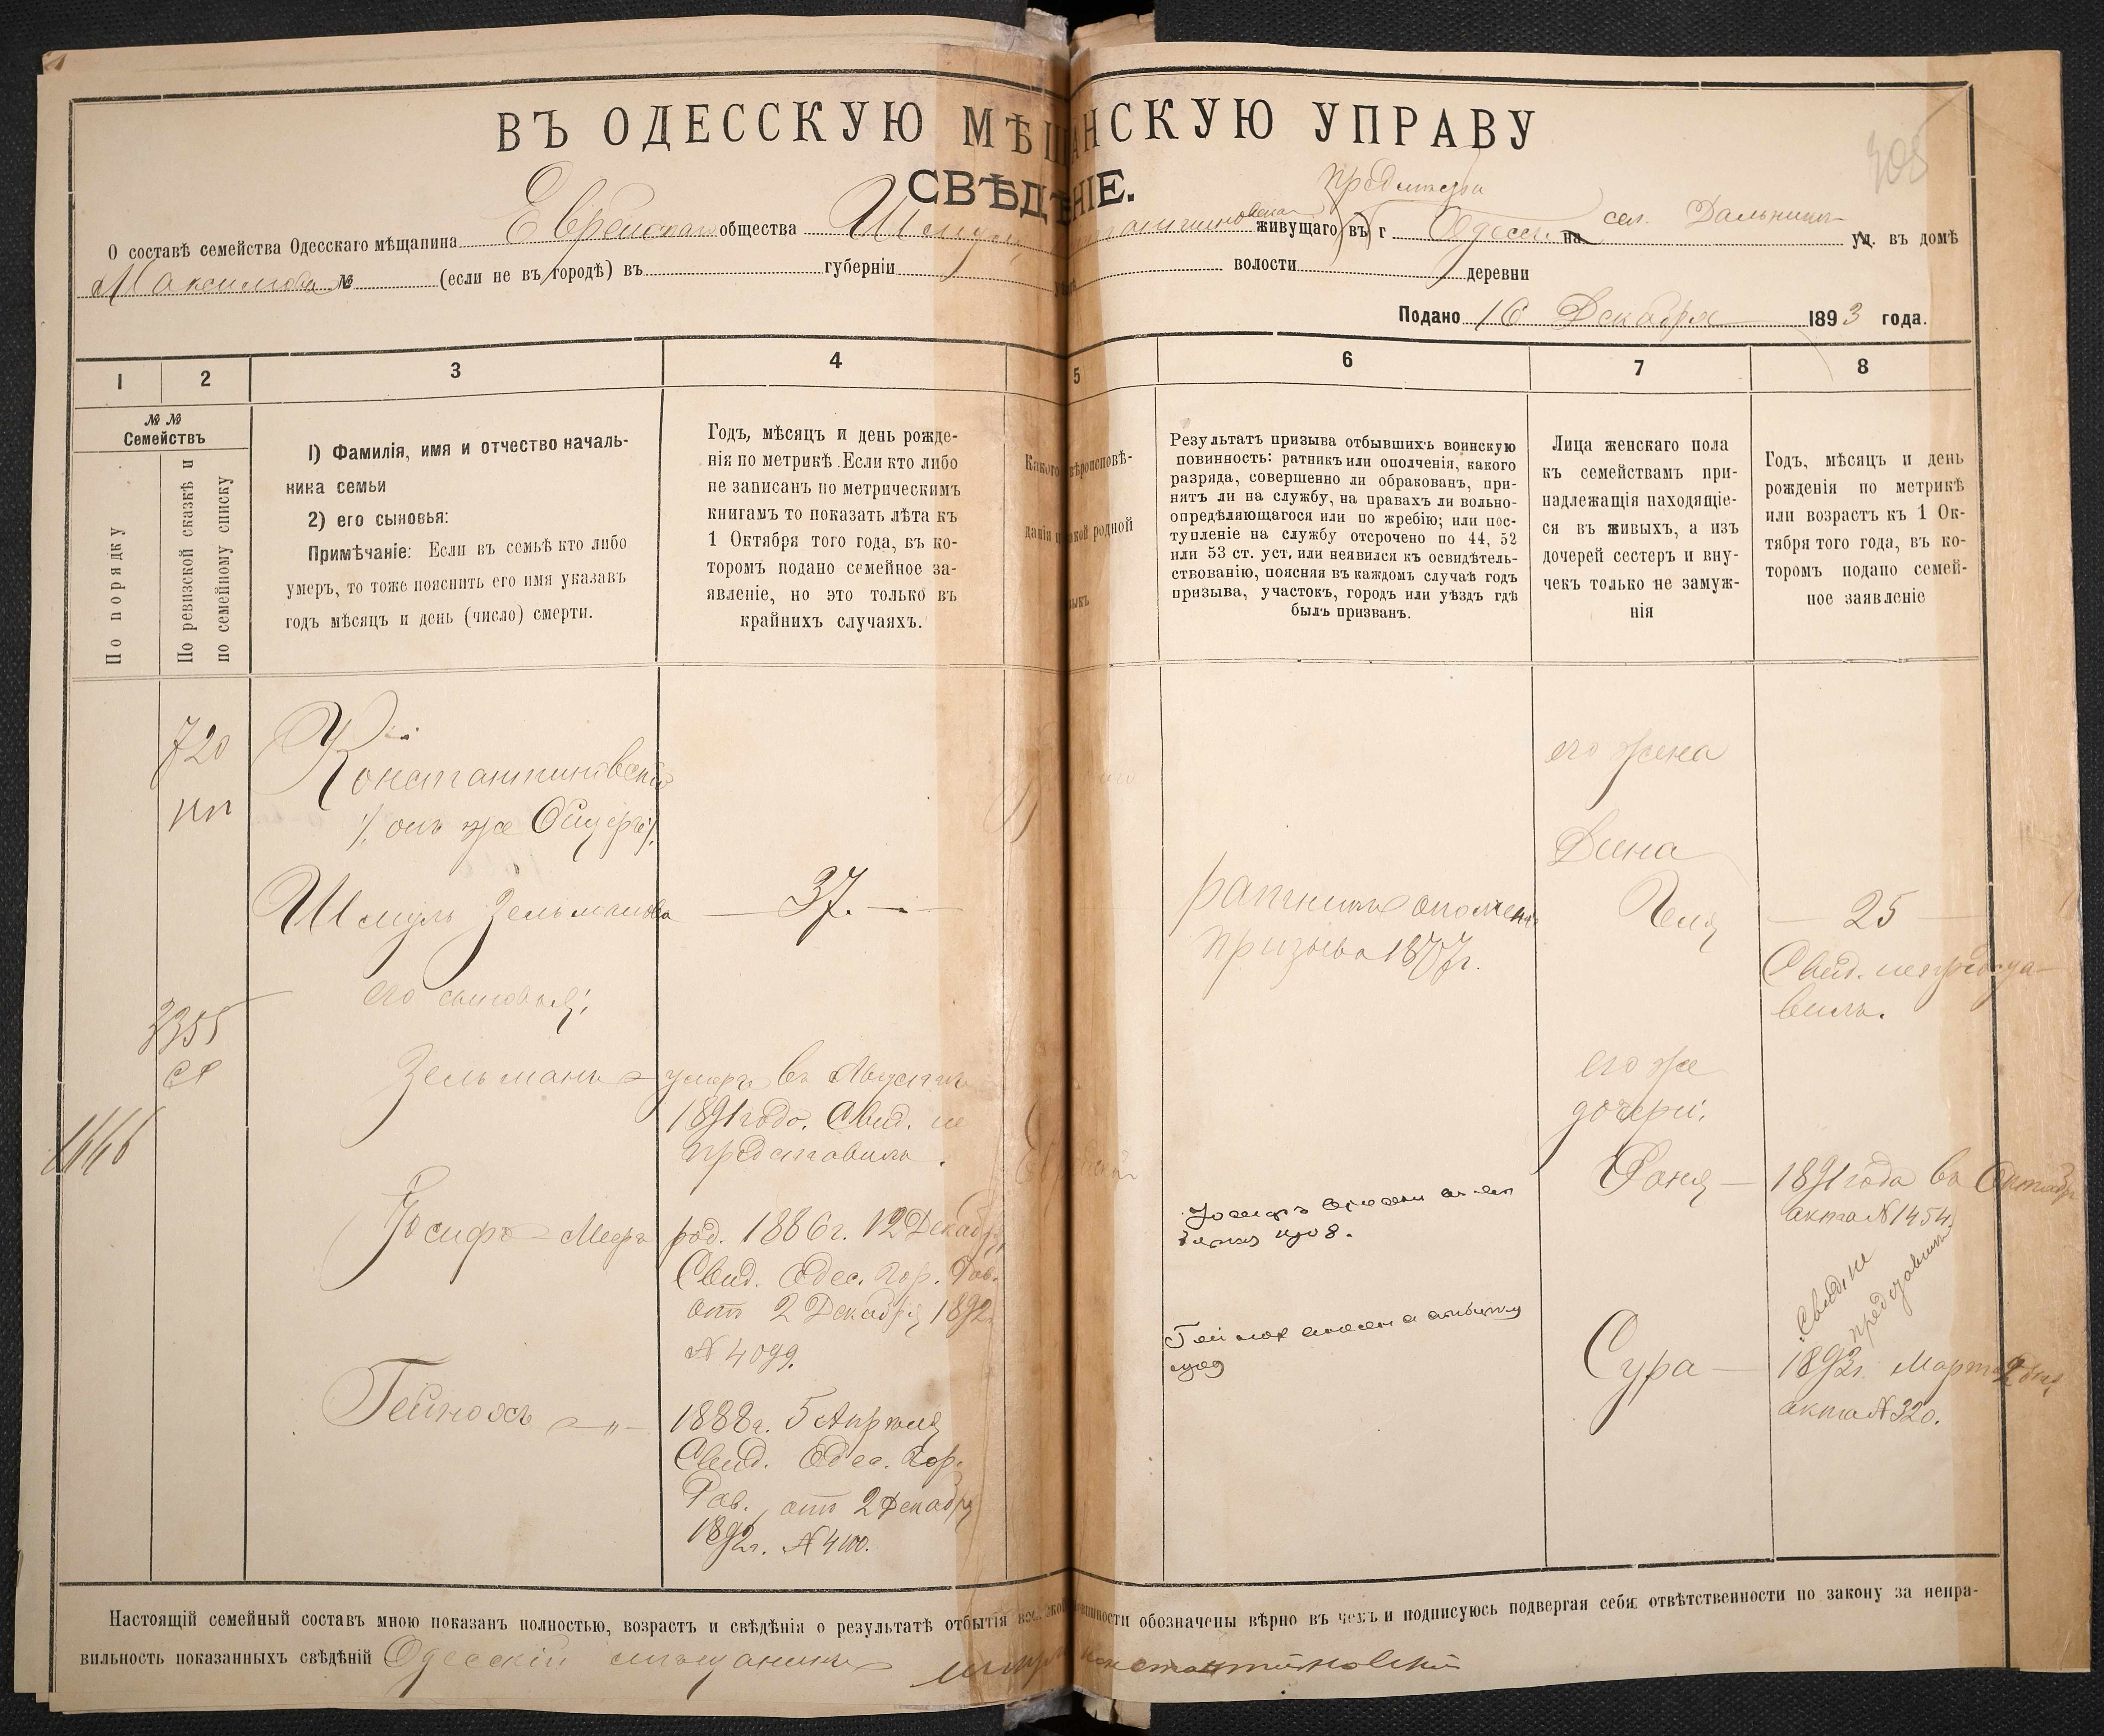 ВЪ ОДЕССКУЮ МѢЩАНСКУЮ УПРАВУ
СВѢДѢНІЕ.
О составѣ семейства Одесскаго мѣщанина Еврейскаго общества живущаго въ г Одессѣ на сел. Дальникъ уч. въ домѣ
Максимова № (если не въ городѣ) въ губерніи волости деревни
Подано 16 Декабря 1893 года.
1 2 3 4 5 6 7 8
№ № Семействъ
По порядку
По ревизской сказкѣ и по семейному списку
1) Фамилія, имя и отчество началь-
ника семьи
2) его сыновья:
Примѣчаніе: Если въ семьѣ кто либо
умеръ, то тоже пояснить его имя указавъ
годъ мѣсяцъ и день (число) смерти.
Годъ, мѣсяцъ и день рожде-
нія по метрикѣ. Если кто либо
не записанъ по метрическимъ
книгамъ то показать лѣта къ
1 Октября того года, въ ко-
торомъ подано семейное за-
явленіе, но это только въ
крайнихъ случаяхъ.
Какого вѣроисповѣ-
данія и какой родной
языкъ
Результатъ призыва отбывшихъ воинскую
повинность: ратникъ или ополченія, какого
разряда, совершенно ли обракованъ, при-
нятъ ли на службу, на правахъ ли вольно-
опредѣляющагося или по жребію; или пос-
тупленіе на службу отсрочено по 44, 52
или 53 ст. уст. или неявился къ освидѣтель-
ствованію, поясняя въ каждомъ случаѣ годъ
призыва, участокъ, городъ или уѣздъ гдѣ
былъ призванъ.
Лица женскаго пола
къ семействамъ при-
надлежащія находящіе-
ся въ живыхъ, а изъ
дочерей сестеръ и вну-
чекъ только не замуж-
нія
Годъ, мѣсяцъ и день
рожденія по метрикѣ
или возрастъ къ 1 Ок-
тября того года, въ ко-
торомъ подано семей-
ное заявленіе
720
Константиновскій
/. онъ же /.
Шмуль Зельмановъ
37.
его сыновья;
3355
1446
Зельманъ умеръ въ Августѣ
1891 года. Свид. не
представилъ.
Іосифъ - Мееръ род. 1886 г. 12 Декабря
Свид. Одес. Гор. Рав.
отъ 2 Декабря 1892
N 4099.
Гейнохъ - " - 1888 г. 5 Апрѣля
Свид. Одес. Гор.
Рав. отъ 2 Декабря
1892 г. N 4100.
ратникъ ополченія
призыва 1877 г.
его жена
Дина
25
Свид. не предста-
вилъ.
его же
дочери:
Фаня - 1891 года въ Октябрѣ
акта N 1454.
Свид. не
представилъ
Сура - 1893 г. Марта 2 дня
акта N 320.
Настоящій семейный составъ мною показанъ полностью, возрастъ и свѣдѣнія о результатѣ отбытія воинской повинности обозначены вѣрно въ чемъ и подписуюсь подвергая себя отвѣтственности по закону за непра-
вильность показанныхъ свѣдѣній Одесскій мѣщанинъ Константиновскій